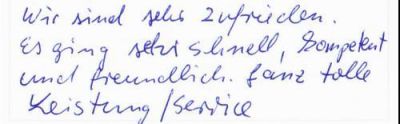 Wir sind sehr zufrieden.
Es ging sehr schnell, kompetent
und freundlich. Ganz tolle
Leistung/Service